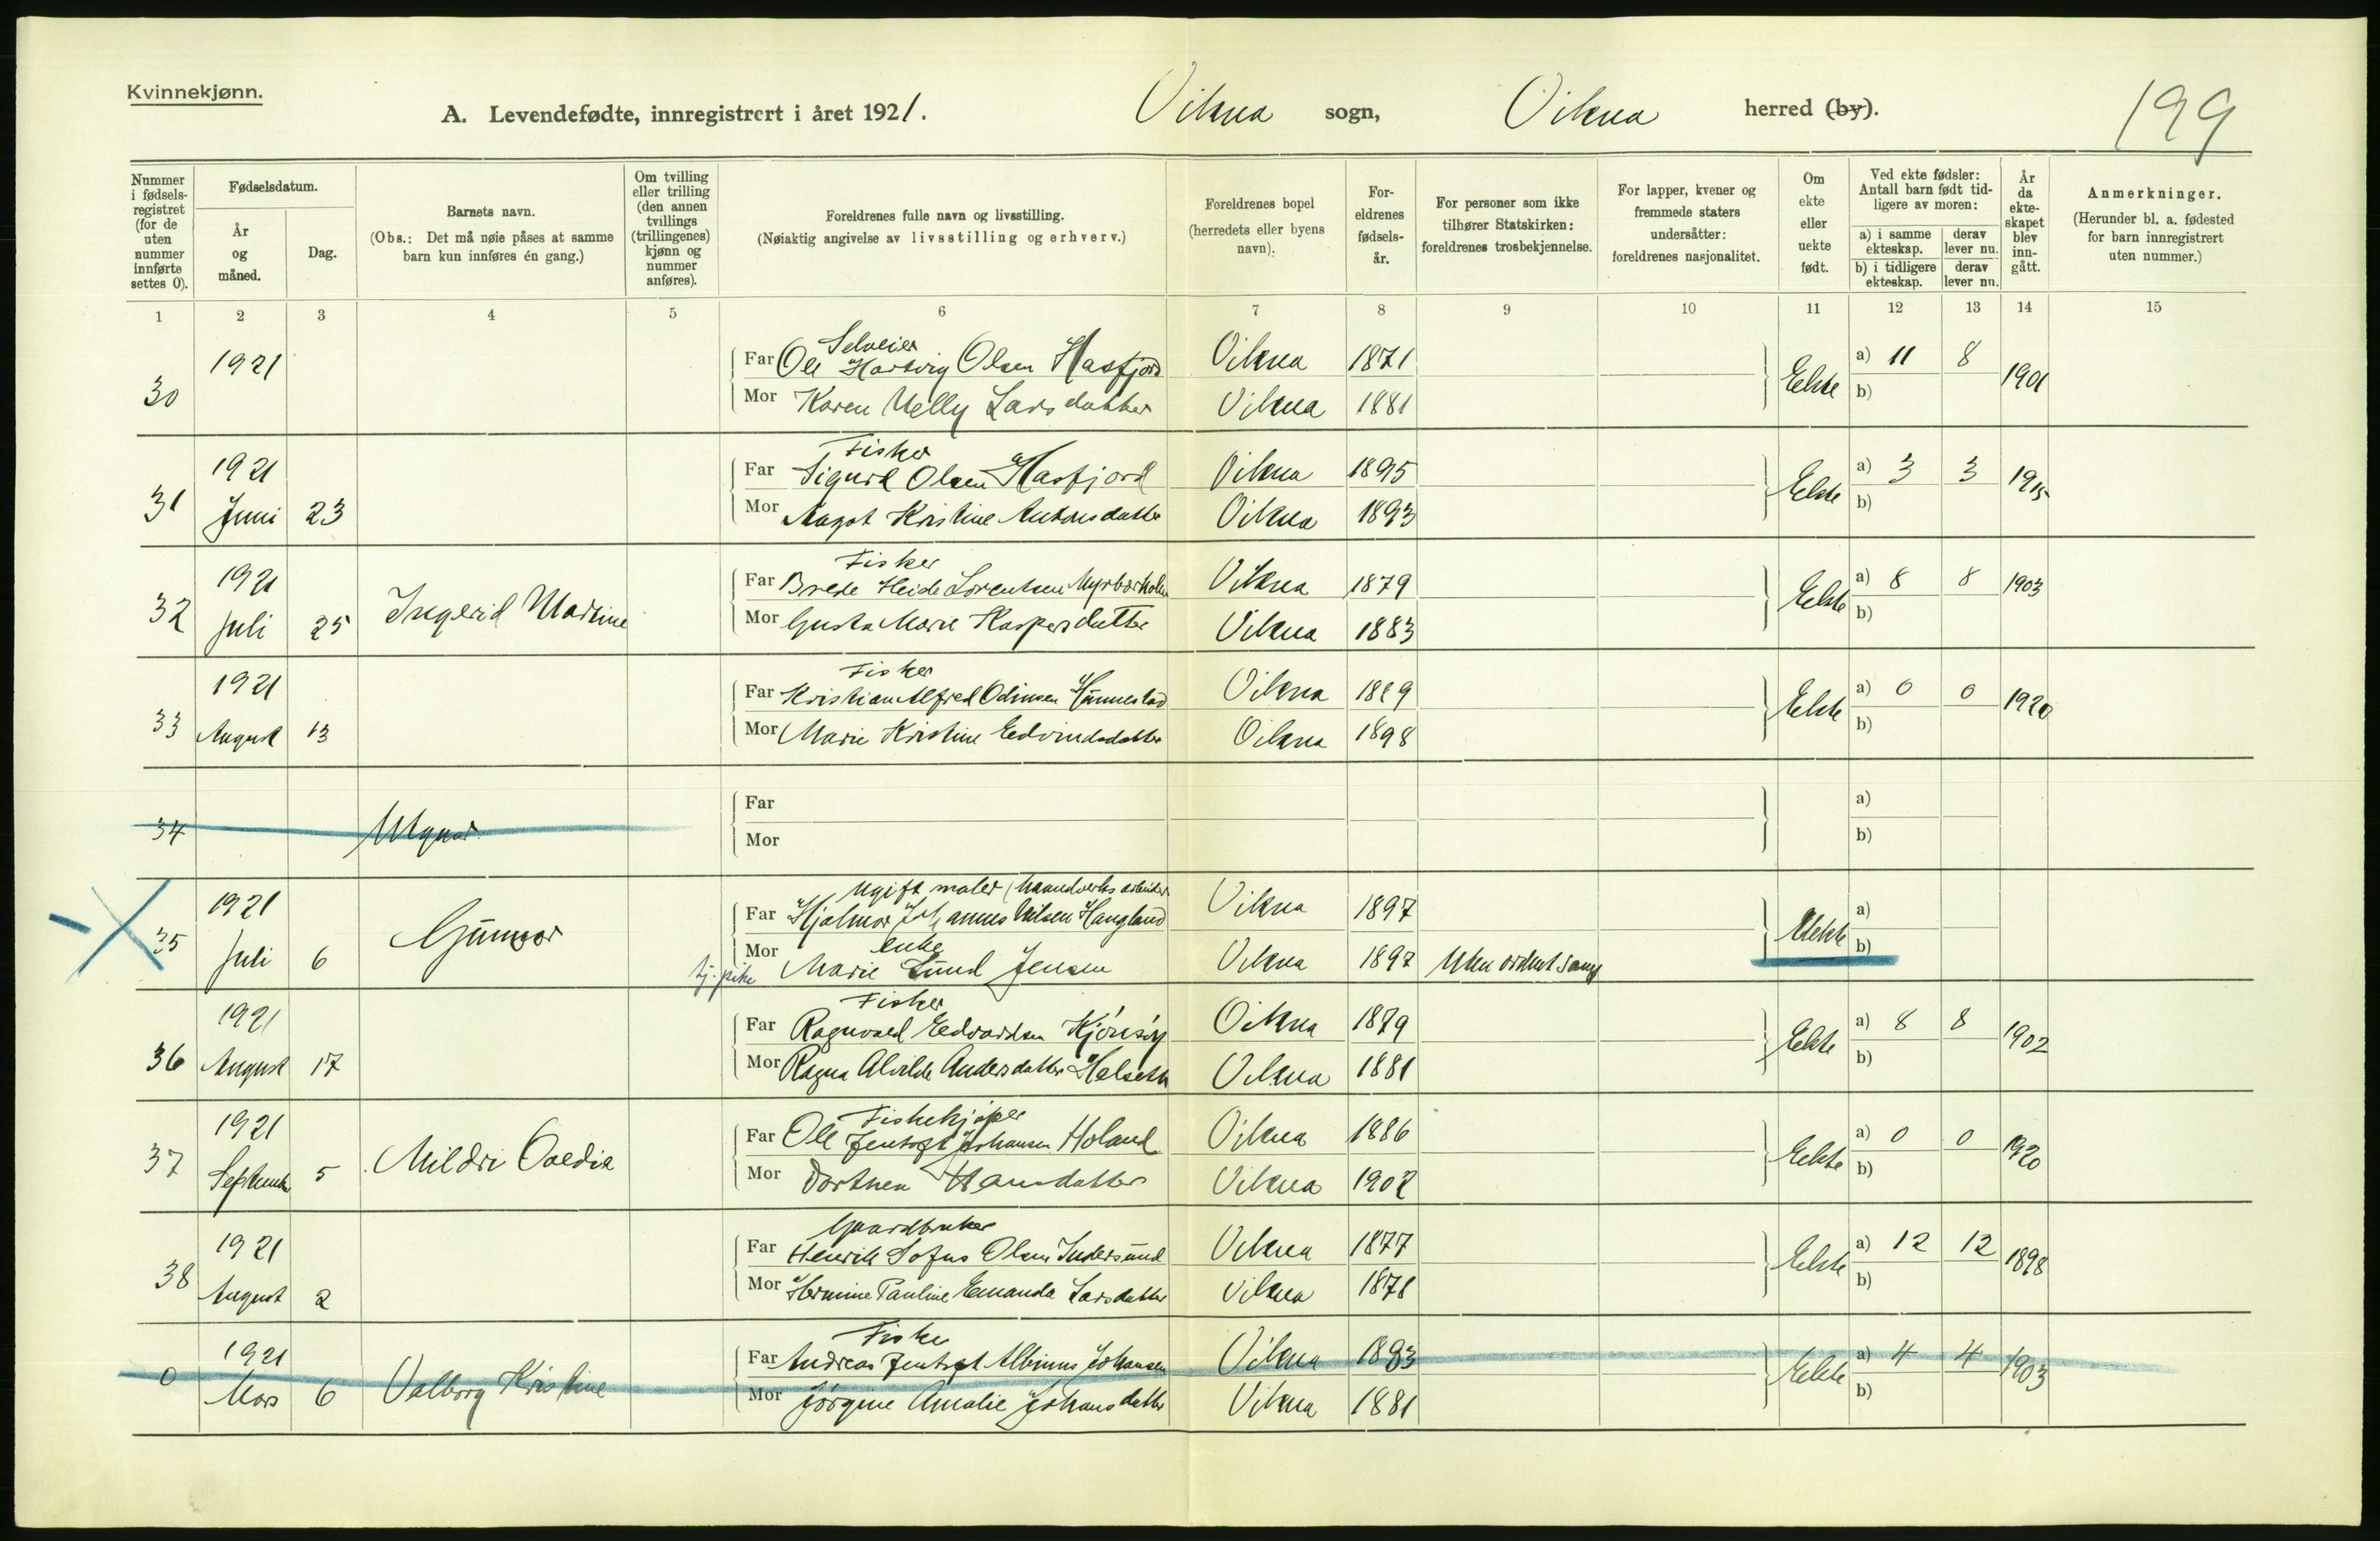 Kvinnekjønn.
A. Levendefødte, innregistrert i året 1921. Vikna sogn, Vikna herred (by).
199
Nummer i fødsels-registret (for de uten nummer innførte settes 0).
Fødselsdatum.
År og måned.
Dag.
Barnets navn.
(Obs.: Det må nøie påses at samme barn kun innføres én gang.)
Om tvilling eller trilling (den annen tvillings (trillingenes) kjønn og nummer anføres).
Foreldrenes fulle navn og livsstilling.
(Nøiaktig angivelse av livsstilling og erhverv.)
Foreldrenes bopel (herredets eller byens navn).
For-eldrenes fødsels-år.
For personer som ikke tilhører Statskirken: foreldrenes trosbekjennelse.
For lapper, kvener og fremmede staters undersåtter: foreldrenes nasjonalitet.
Om ekte eller uekte født.
Ved ekte fødsler: Antall barn født tid-ligere av moren:
a) i samme ekteskap. derav lever nu.
b) i tidligere ekteskap. derav lever nu.
År da ekte-skapet blev inn-gått.
Anmerkninger.
(Herunder bl. a. fødested for barn innregistrert uten nummer.)
1 2 3 4 5 6 7 8 9 10 11 12 13 14 15
Selveier
30 1921 Far Ole Hartvig Olsen Hasfjord Vikna 1871 Ekte a) 11 8 1901
Mor Karen Nelly Larsdatter Vikna 1881 b)
Fisker
1921 Far Sigurd Olsen Hasfjord Vikna 1895 Ekte a) 3 3 1915
31 Juni 23 Mor Aagot Kristine Antonsdatter Vikna 1893 b)
Fisker
1921 Far Brede Heide Lorentsen Vikna 1879 Ekte a) 8 8 1903
32 Juli 25 Ingerid Martine Mor Gusta Marie Kaspersdatter Vikna 1883 b)
Fisker
1921 Far Kristian Alfred Odinsen Hunnestad Vikna 1889 Ekte a) 0 0 1920
33 August 13 Mor Marie Kristine Edvindsdatter Vikna 1898 b)
Far a)
34 Mor b)
Ugift maler (haandverks arbeider
1921 Far Hjalmar Johannes Nilsen Haugland Vikna 1897 Uekte a)
35 Juli 6 Gunvor enke
tj. pike Mor Marie Lund Jensen Vikna 1897 b)
Fisker
1921 Far Ragnvald Edvardsen Kjönsöy Vikna 1879 Ekte a) 8 8 1902
36 August 17 Mor Ragna Alvilde Andersdatter Helseth Vikna 1881 b)
Fiskekjøper
1921 Far Ole Jentoft Johansen Holand Vikna 1886 Ekte a) 0 0 1920
37 September 5 Mildri Ovedia Mor Dorthea Hansdatter Vikna 1902 b)
Gaardbruker
1921 Far Henrik Sofus Olsen Indersund Vikna 1877 Ekte a) 12 12 1898
38 August 2 Mor Hermine Pauline Emanda Larsdatter Vikna 1878 b)
Fisker
1921 Far Andreas Jentoft Albinus Johansen Vikna 1883 Ekte a) 4 4 1903
0 Mars 6 Valborg Kristine Mor Jörgine Amalie Johansdatter Vikna 1881 b)